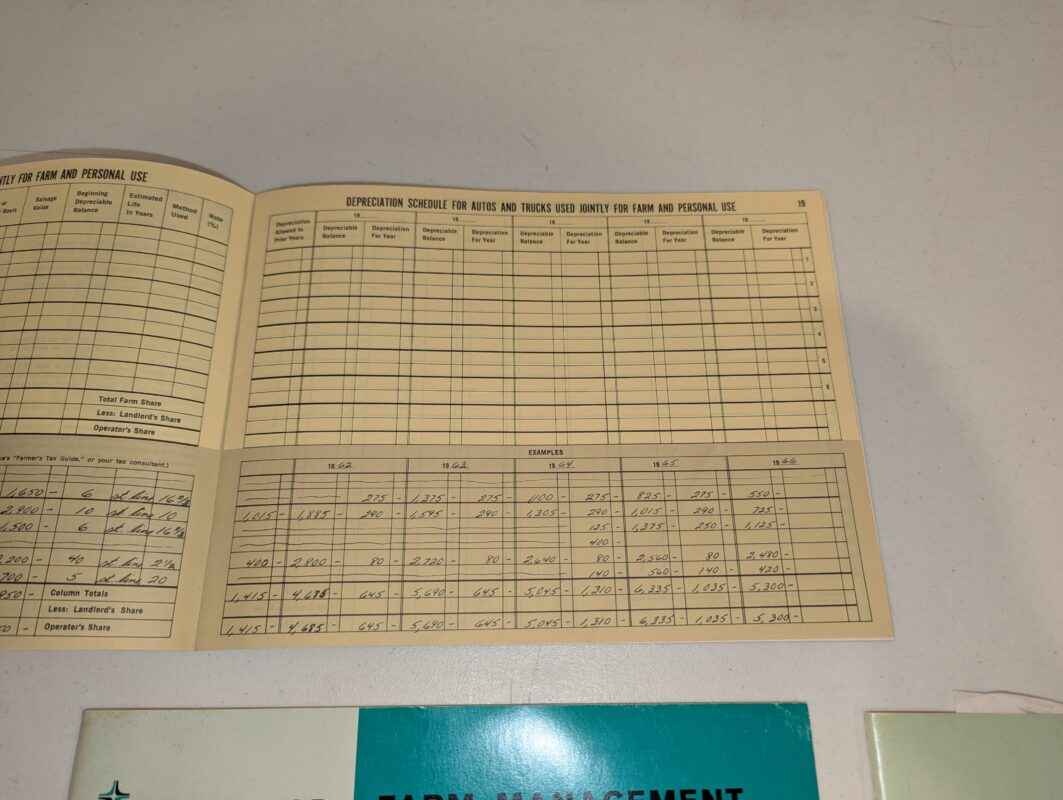 NTLY FOR FARM AND PERSONAL USE
Salvage Value
Beginning Depreciable Balance
Estimated Life in Years
Method Used
Rate (%)
Total Farm Share
Less: Landlord's Share
Operator's Share
"Farmer's Tax Guide," or your tax consultant.)
1,650 - 6 st line 16 2/3
2,900 - 10 st line 10
1,500 - 6 st line 16 2/3
,200 - 40 st line 2 1/2
700 - 5 st line 20
950 - Column Totals
Less: Landlord's Share
0 - Operator's Share
DEPRECIATION SCHEDULE FOR AUTOS AND TRUCKS USED JOINTLY FOR FARM AND PERSONAL USE 19
19 19 19 19 19
Depreciation Allowed In Prior Years
Depreciable Balance
Depreciation For Year
Depreciable Balance
Depreciation For Year
Depreciable Balance
Depreciation For Year
Depreciable Balance
Depreciation For Year
Depreciable Balance
Depreciation For Year
1
2
3
4
5
6
EXAMPLES
1962 1963 1964 1965 1966
275 - 1,375 - 275 - 1100 - 275 - 825 - 275 - 550 -
1,015 - 1,885 - 290 - 1,595 - 290 - 1,305 - 290 - 1,015 - 290 - 725 -
125 - 1,375 - 250 - 1,125 -
400 -
400 - 2,800 - 80 - 2,720 - 80 - 2,640 - 80 - 2,560 - 80 - 2,480 -
140 - 560 - 140 - 420 -
1,415 - 4,685 - 645 - 5,690 - 645 - 5,045 - 1,310 - 6,335 - 1,035 - 5,300 -
1,415 - 4,685 - 645 - 5,690 - 645 - 5,045 - 1,310 - 6,335 - 1,035 - 5,300 -
FARM MANAGEMENT